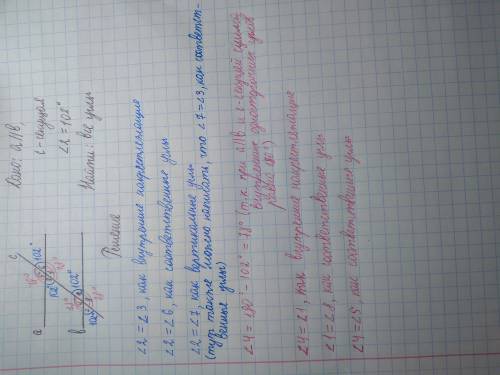 Дано: a∥b,
c-секущая
∠2 = 102°
Найти: все углы
a
c
102°
b
102°
Решение
∠2 = ∠3, как внутренние накрестлежащие
∠2 = ∠6, как соответственные углы
∠2 = ∠7, как вертикальные углы
(тут также можно написать, что ∠7=∠3, как соответст-
венные углы)
∠4 = 180° - 102° = 78° (т.к при a∥b и c-секущей сумма
внутренних односторонних углов
равна 180°)
∠4 = ∠1, как внутренние накрестлежащие
∠1 = ∠8, как соответственные углы
∠4 = ∠5, как соответственные углы